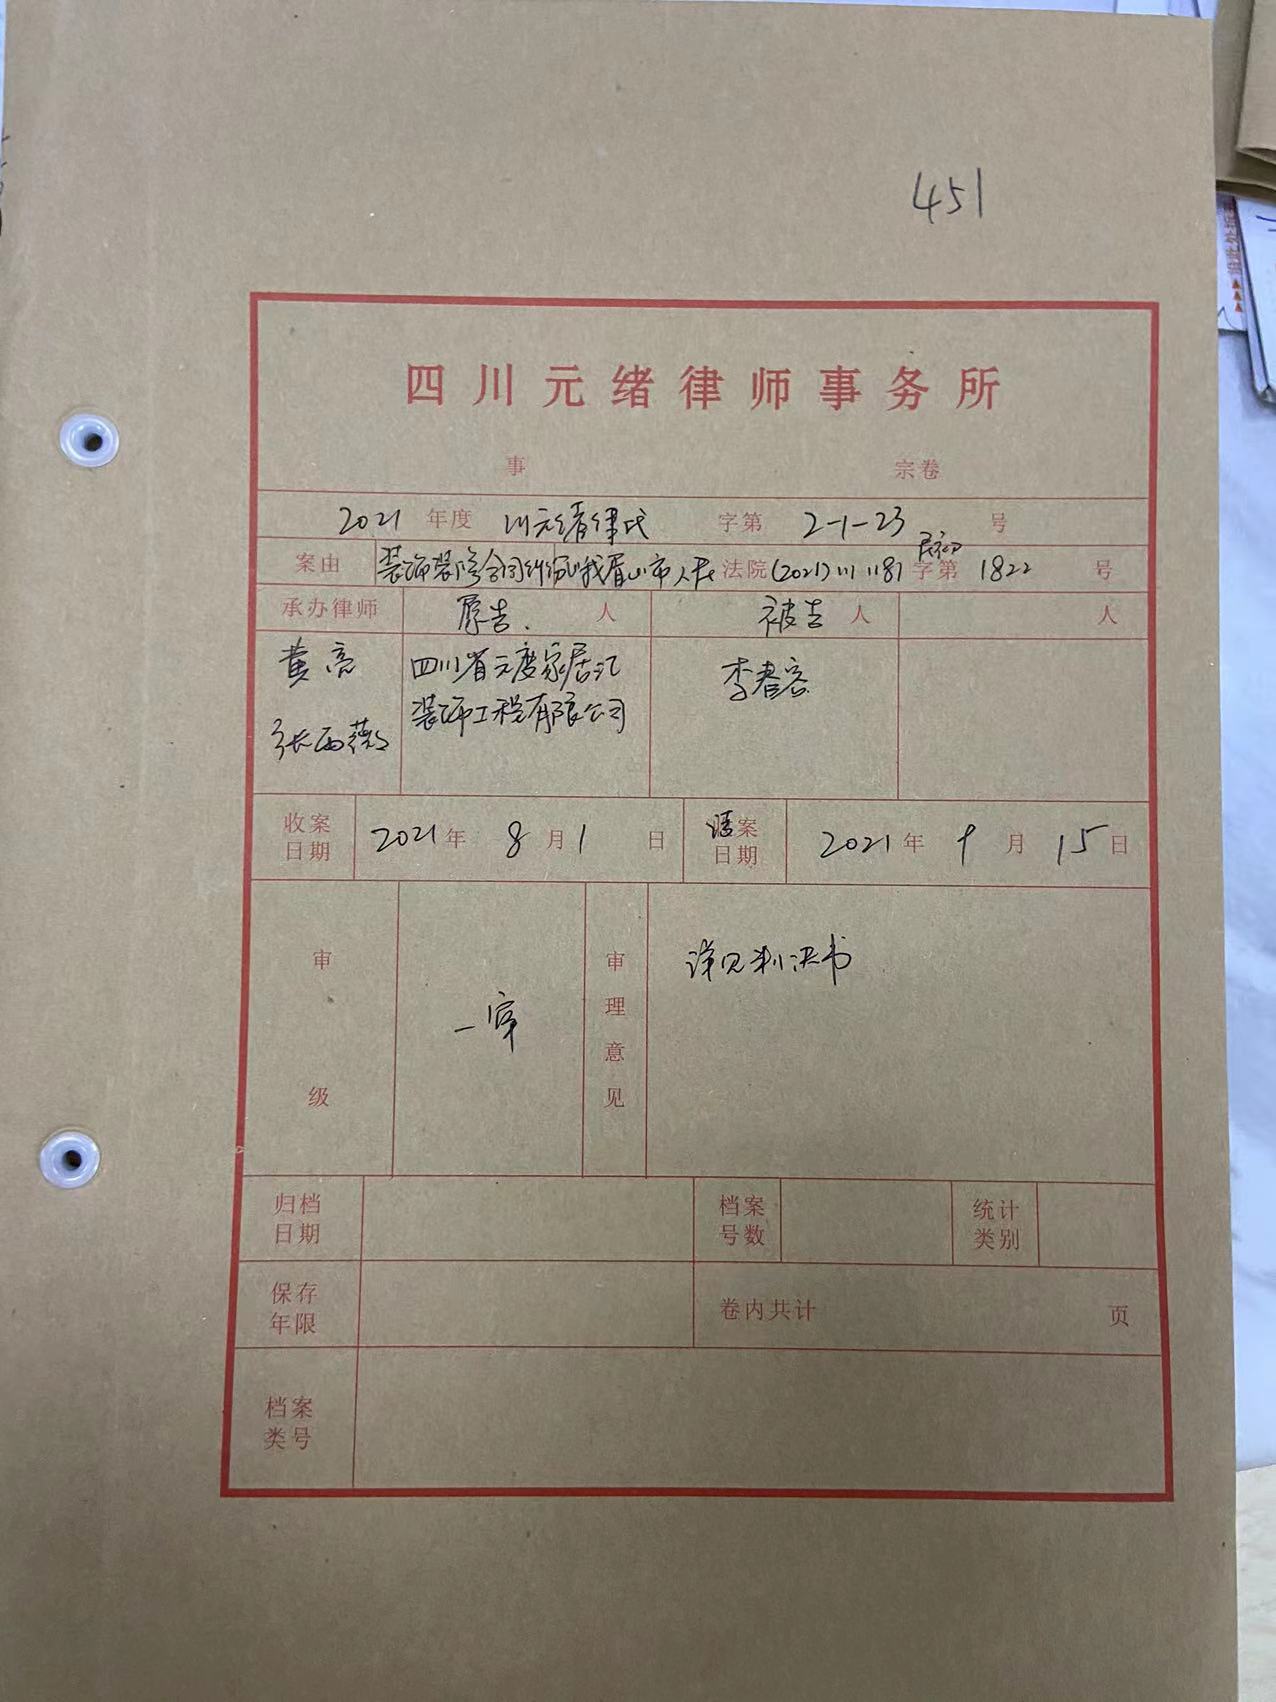 451
四川元绪律师事务所
事 宗卷
2021 年度 川元绪律民 字第 2-1-23 号
案由 装饰装修合同纠纷 峨眉山市人民 法院 (2021)川1181 民初 字第 1822 号
承办律师 原告. 人 被告 人 人
黄亮 四川省元度家居汇 李春容
装饰工程有限公司
张西薇
收案 2021年 8月1日 结案 2021年 9月15日
日期 日期
审 审 详见判决书
一审 理
意
级 见
归档 档案 统计
日期 号数 类别
保存 卷内共计 页
年限
档案
类号